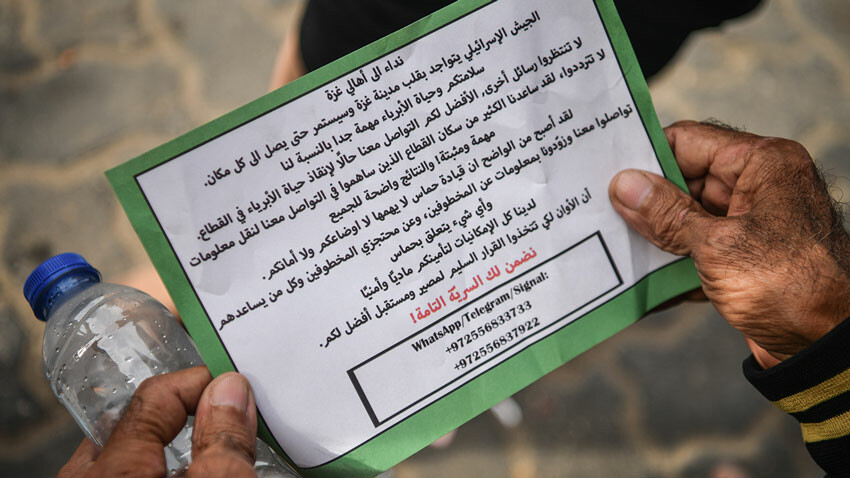 نداء ال أهالي غزة
الجيش الإسرائيلي يتواجد بقلب مدينة غزة وسيستمر حتى يصل الى كل مكان.
سلامتكم وحياة الأبرياء مهمة جدا بالنسبة لنا
لا تنتظروا رسائل أخرى، الأفضل لكم التواصل معنا حالًا لإنقاذ حياة الأبرياء في القطاع.
لا تترددوا، لقد ساعدنا الكثير من سكان القطاع الذين ساهموا في التواصل معنا لنقل معلومات
مهمة ومثبتة! والنتائج واضحة للجميع
لقد أصبح من الواضح ان قيادة حماس لا يهمها لا اوضاعكم ولا أمانكم.
تواصلوا معنا وزوّدونا بمعلومات عن المخطوفين، وعن محتجزي المخطوفين وكل من يساعدهم
وأي شيء يتعلق بحماس
لدينا كل الإمكانيات لتأمينكم ماديًا وأمنيًا
أن الأوان لكي تتخذوا القرار السليم لمصير ومستقبل أفضل لكم.
نضمن لك السريّة التامة!
WhatsApp/Telegram/Signal:
+972556833733
+972556837922